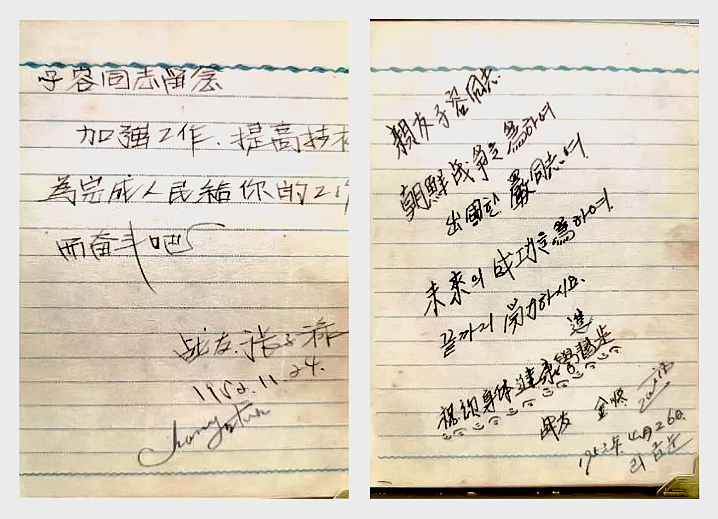 子容同志留念
加强工作.提高技
為完成人民給你的工作
而奋斗吧
战友.张
1952.11.24.
親友子容同志.
朝鮮战争을 為하여
出國한 嚴同志여
未來의 成功을 為하여
끝까지 努力하시요.
進
祝頌身体健康學習 步
战友 金
1953年4月26日